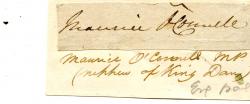 Maurice O'Connell
Maurice O'Connell MP
(nephew of King Dan)